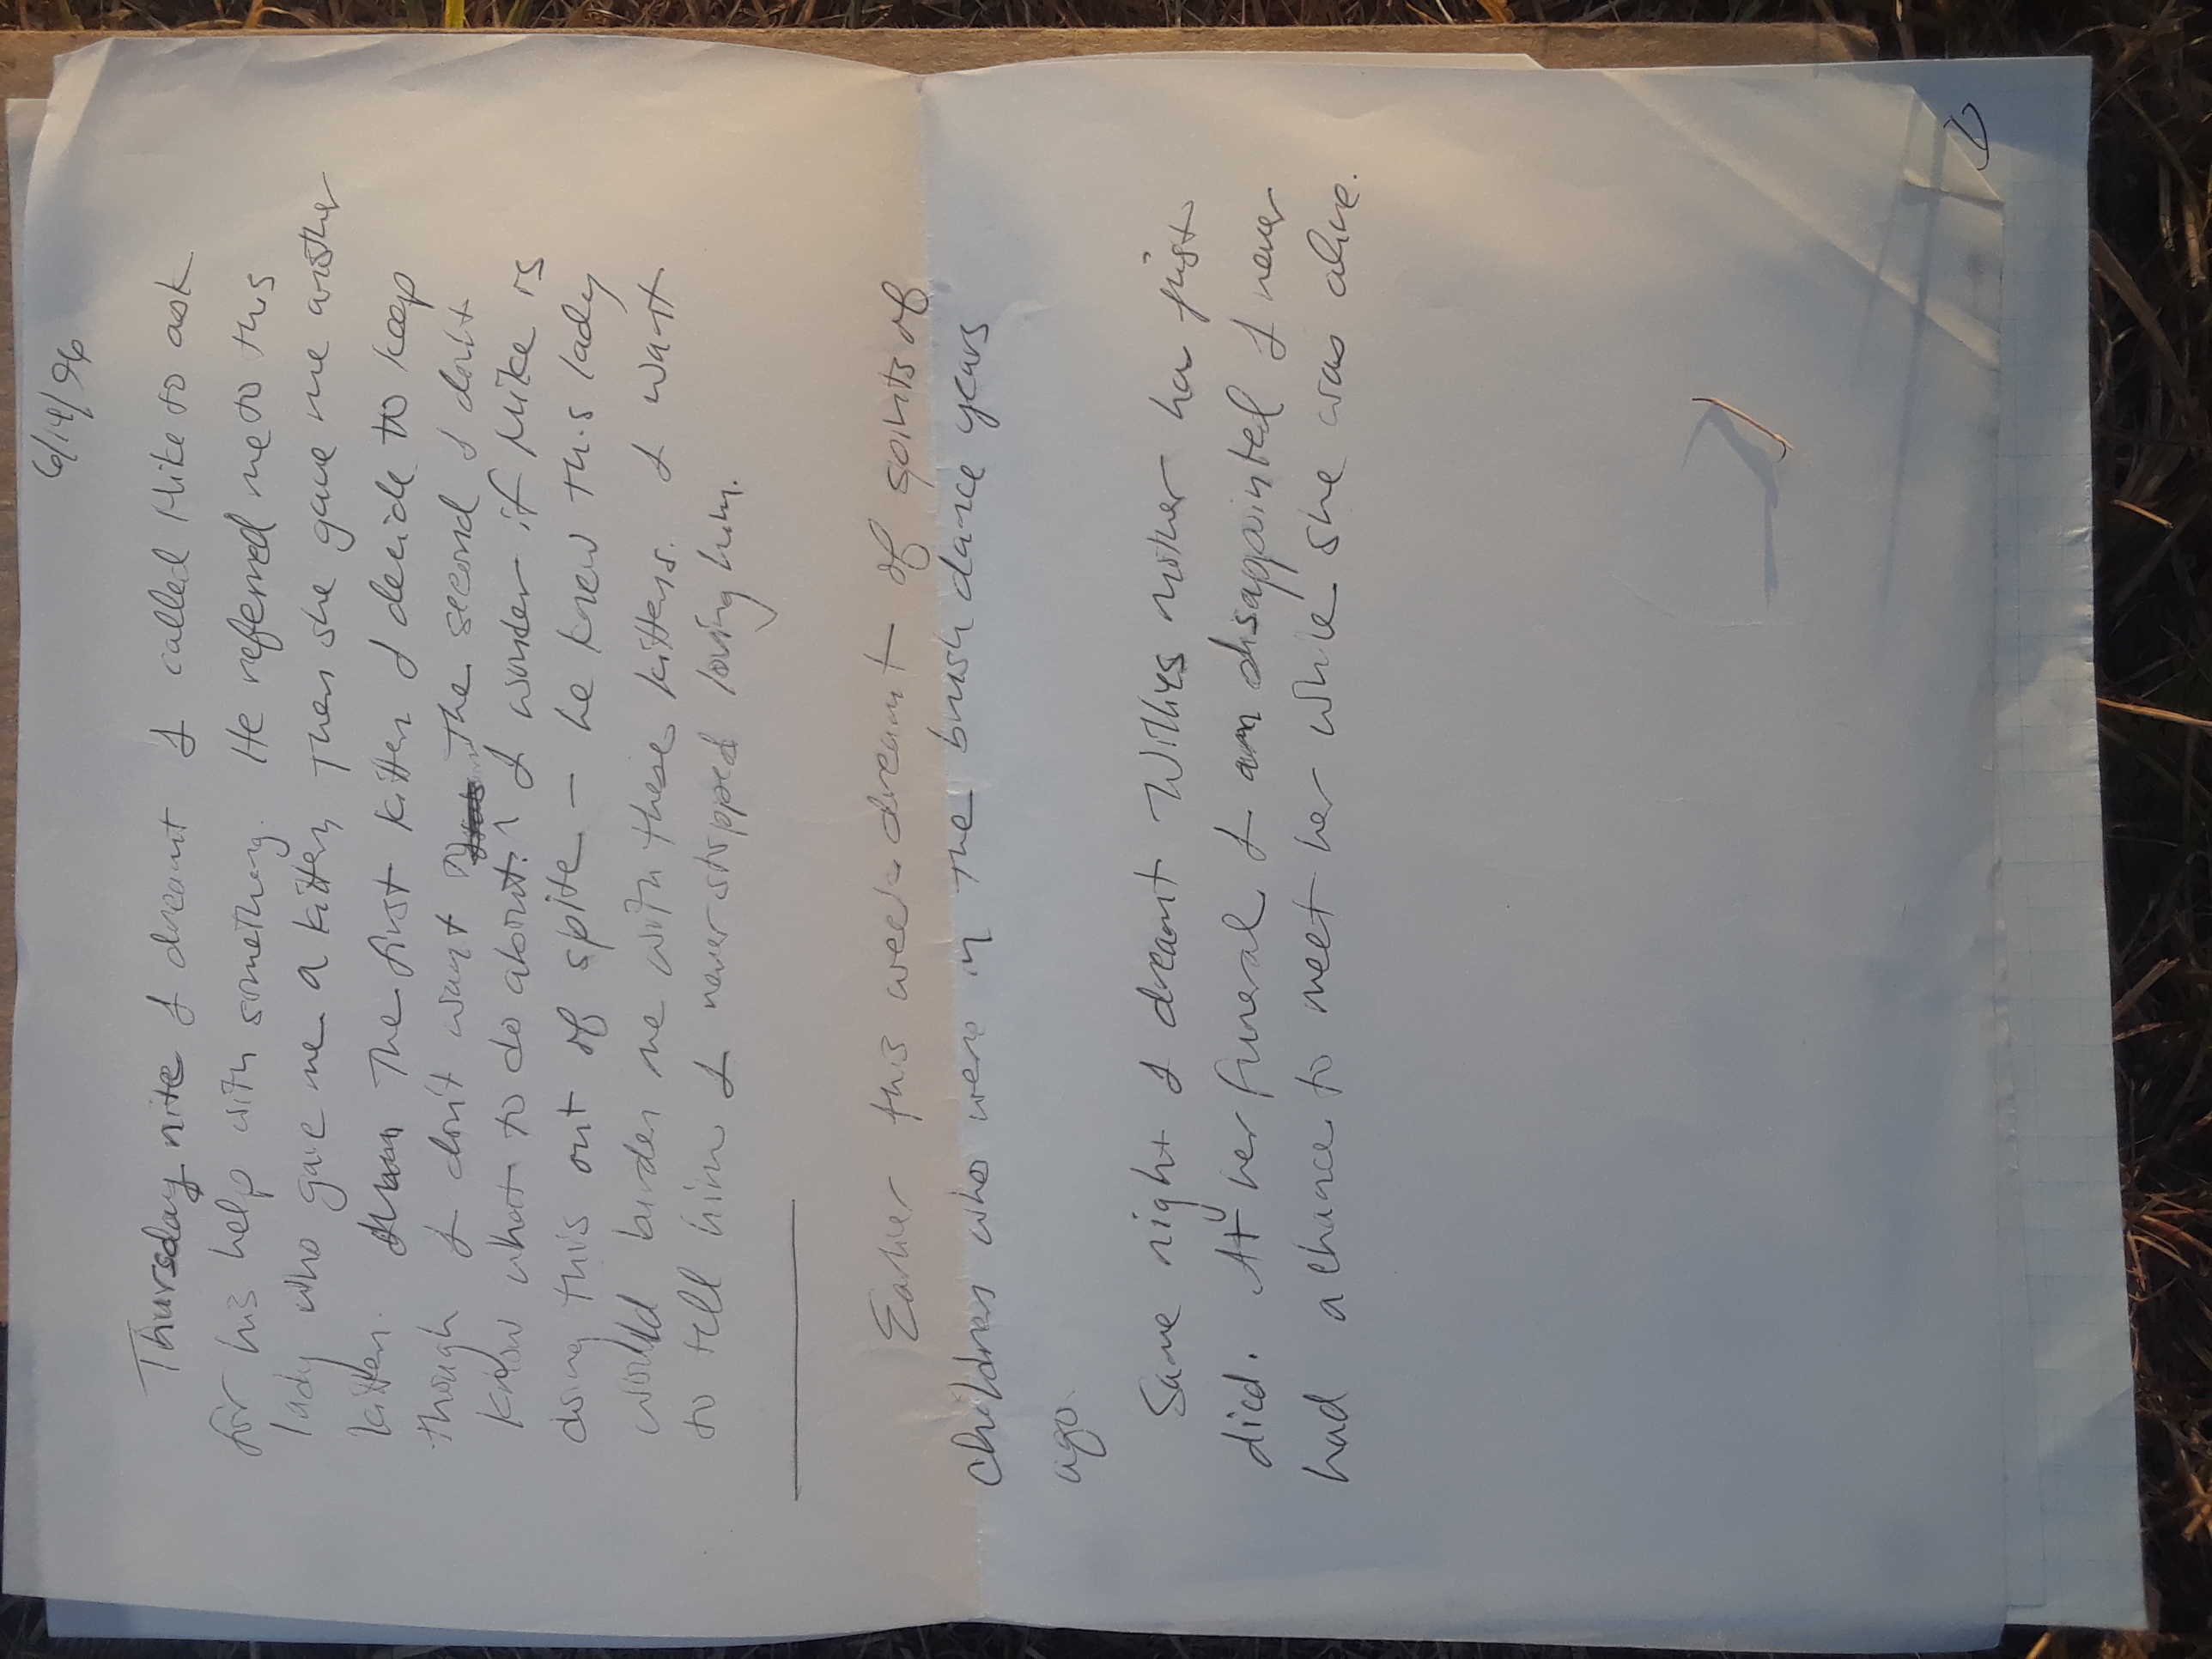 6/14/96
Thursday nite I dreamt I called Mike to ask
for his help with something. He referred me to this
lady who gave me a kitten. Then she gave me another
kitten. The first kitten I decide to keep
though I don't want The second I don't
know what to do about. I wonder if Mike is
doing this out of spite - he knew this lady
would burden me with these kittens. I want
to tell him I never stopped loving him.
Earlier this week dreamt of spirits of
children who were in the brush dance years
ago.
Same night I dreamt Willies mother has just
died. At her funeral I am disappointed I never
had a chance to meet her while she was alive.